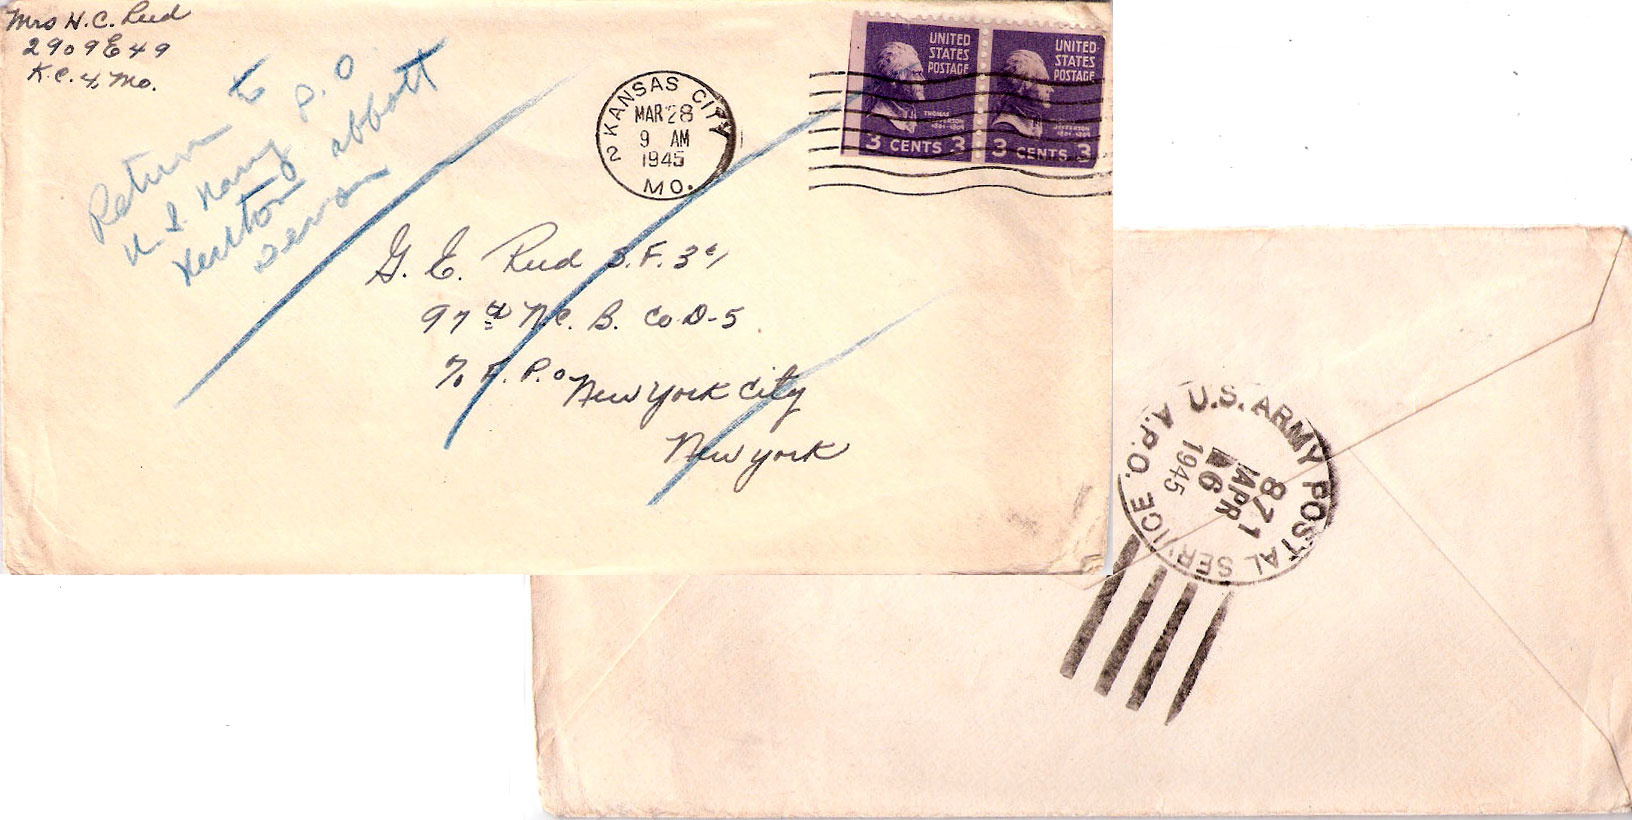 Mrs H.C. Reed
2909 E 49
K.C. 4, Mo.
Return to
U S Navy P.O
Newton Abbott
Devon
2 KANSAS CITY
MAR 28
9 AM
1945
MO.
UNITED
STATES
POSTAGE
THOMAS
JEFFERSON
1801-1809
3 CENTS 3
UNITED
STATES
POSTAGE
JEFFERSON
1801-1809
3 CENTS 3
G. E. Reed S.F. 3c/
97th N.C.B. Co D-5
% F.P.o New York City
New york
U.S. ARMY POSTAL SERVICE A.P.O.
871
APR
6
1945